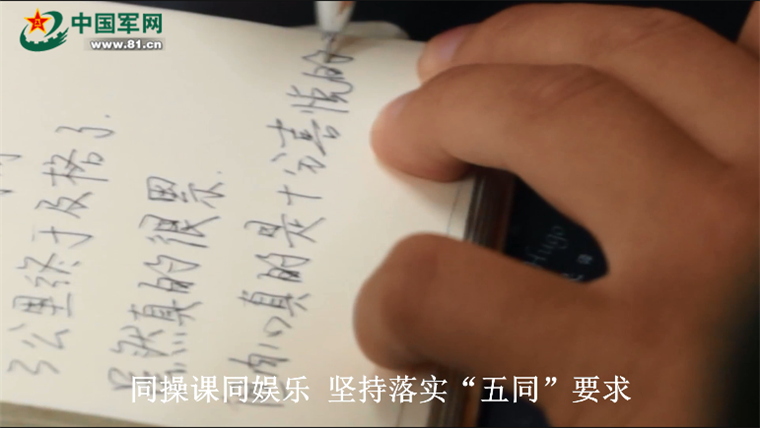 中国军网
www.81.cn
3公里终于及格了.
虽然真的很累.
但内心真的是十分喜悦的
Hugo
同操课同娱乐 坚持落实“五同”要求